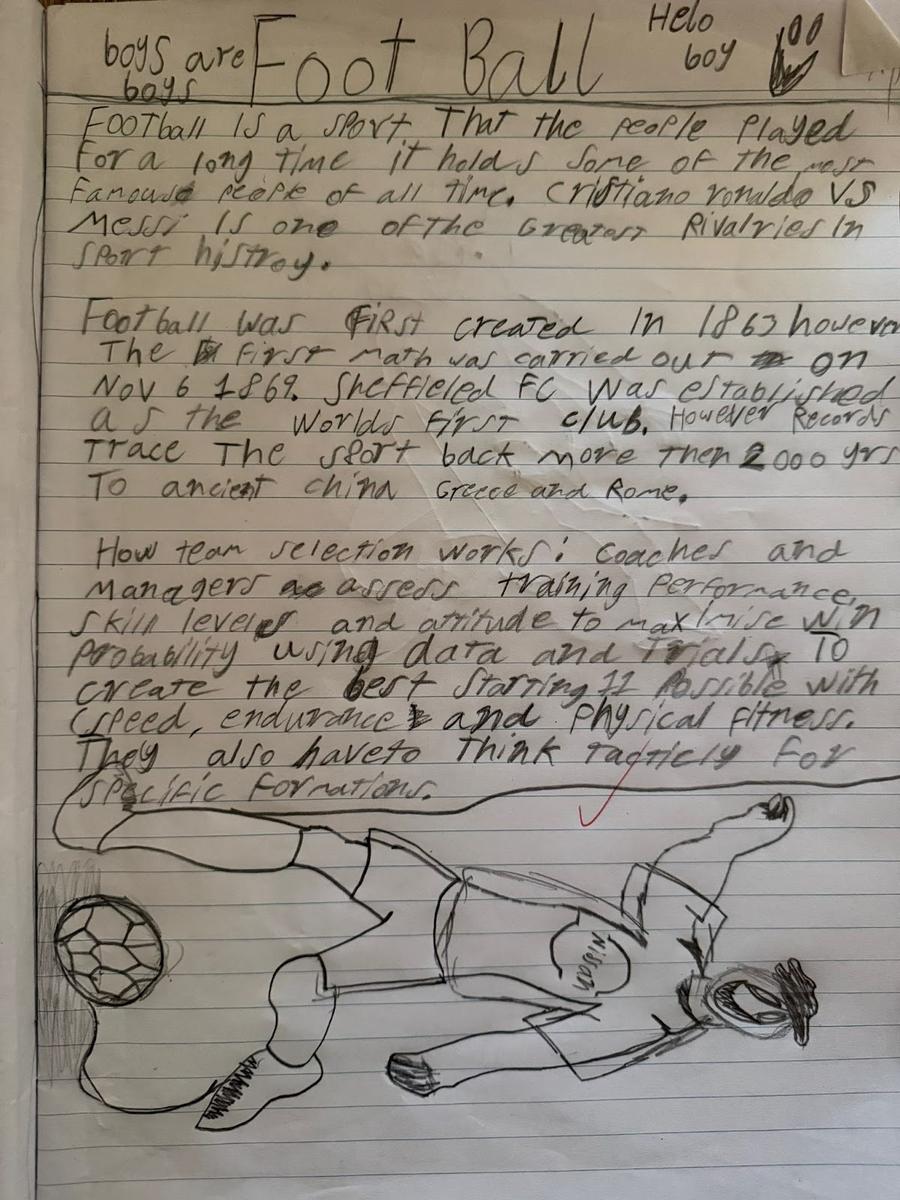 boys are
boys
Foot Ball
Helo
boy
Football is a sport That the people Played
For a long time it holds some of the most
Famouse people of all time. Cristiano ronaldo VS
Messi is one of the Greatest Rivalries In
sport histroy.
Football was First created In 1863 however
The First math was carried out on
Nov 6 1869. Sheffieled FC was established
as the Worlds first club. However Records
Trace The sport back more then 2000 yrs
To ancient china Greece and Rome.
How team selection works: coaches and
Managers assess training Performance,
skill levels and attitude to maximise win
Probability using data and Trials. To
create the best starting 11 Possible with
speed, endurance and Physical fitness.
They also have to Think tacticly For
specific Formations.
Nissan